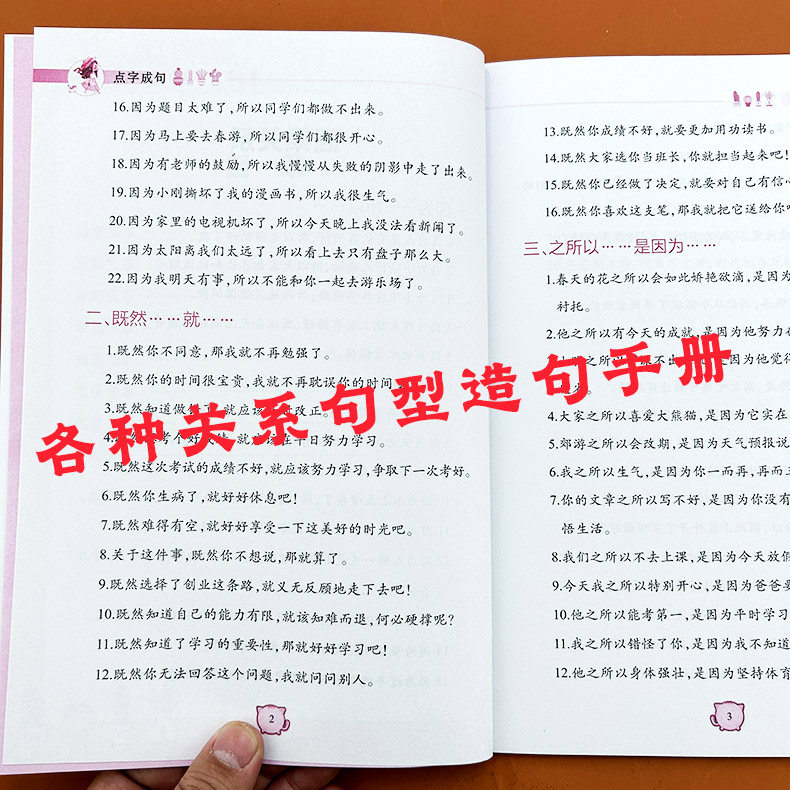 点字成句
16.因为题目太难了,所以同学们都做不出来。
17.因为马上要去春游,所以同学们都很开心。
18.因为有老师的鼓励,所以我慢慢从失败的阴影中走了出来。
19.因为小刚撕坏了我的漫画书,所以我很生气。
20.因为家里的电视机坏了,所以今天晚上我没法看新闻了。
21.因为太阳离我们太远了,所以看上去只有盘子那么大。
22.因为我明天有事,所以不能和你一起去游乐场了。
二、既然……就……
1.既然你不同意,那我就不再勉强了。
2.既然你的时间很宝贵,我就不再耽误你的时间
3.既然知道做错了,就应该 改正。
4. 考个好成绩,就应该在平日努力学习。
5.既然这次考试的成绩不好,就应该努力学习,争取下一次考好。
6.既然你生病了,就好好休息吧!
7.既然难得有空,就好好享受一下这美好的时光吧。
8.关于这件事,既然你不想说,那就算了。
9.既然选择了创业这条路,就义无反顾地走下去吧!
10.既然知道自己的能力有限,就该知难而退,何必硬撑呢?
11.既然知道了学习的重要性,那就好好学习吧!
12.既然你无法回答这个问题,我就问问别人。
2
13.既然你成绩不好,就要更加用功读书。
14.既然大家选你当班长,你就担当起来吧!
15.既然你已经做了决定,就要对自己有信心
16.既然你喜欢这支笔,那我就把它送给你吧
三、之所以……是因为……
1.春天的花之所以会如此娇艳欲滴,是因为
衬托。
2.他之所以有今天的成就,是因为他努力
之所以 不出 是因为他觉得
4.大家之所以喜爱大熊猫,是因为它实在
5.郊游之所以会改期,是因为天气预报说
6.我之所以生气,是因为你一而再,再而三
7.你的文章之所以写不好,是因为你没有
悟生活。
8.我们之所以不去上课,是因为今天放假
9.今天我之所以特别开心,是因为爸爸要
10.他之所以能考第一,是因为平时学习
11.我之所以错怪了你,是因为我不知道
12.他之所以身体强壮,是因为坚持体育
3
各种关系句型造句手册